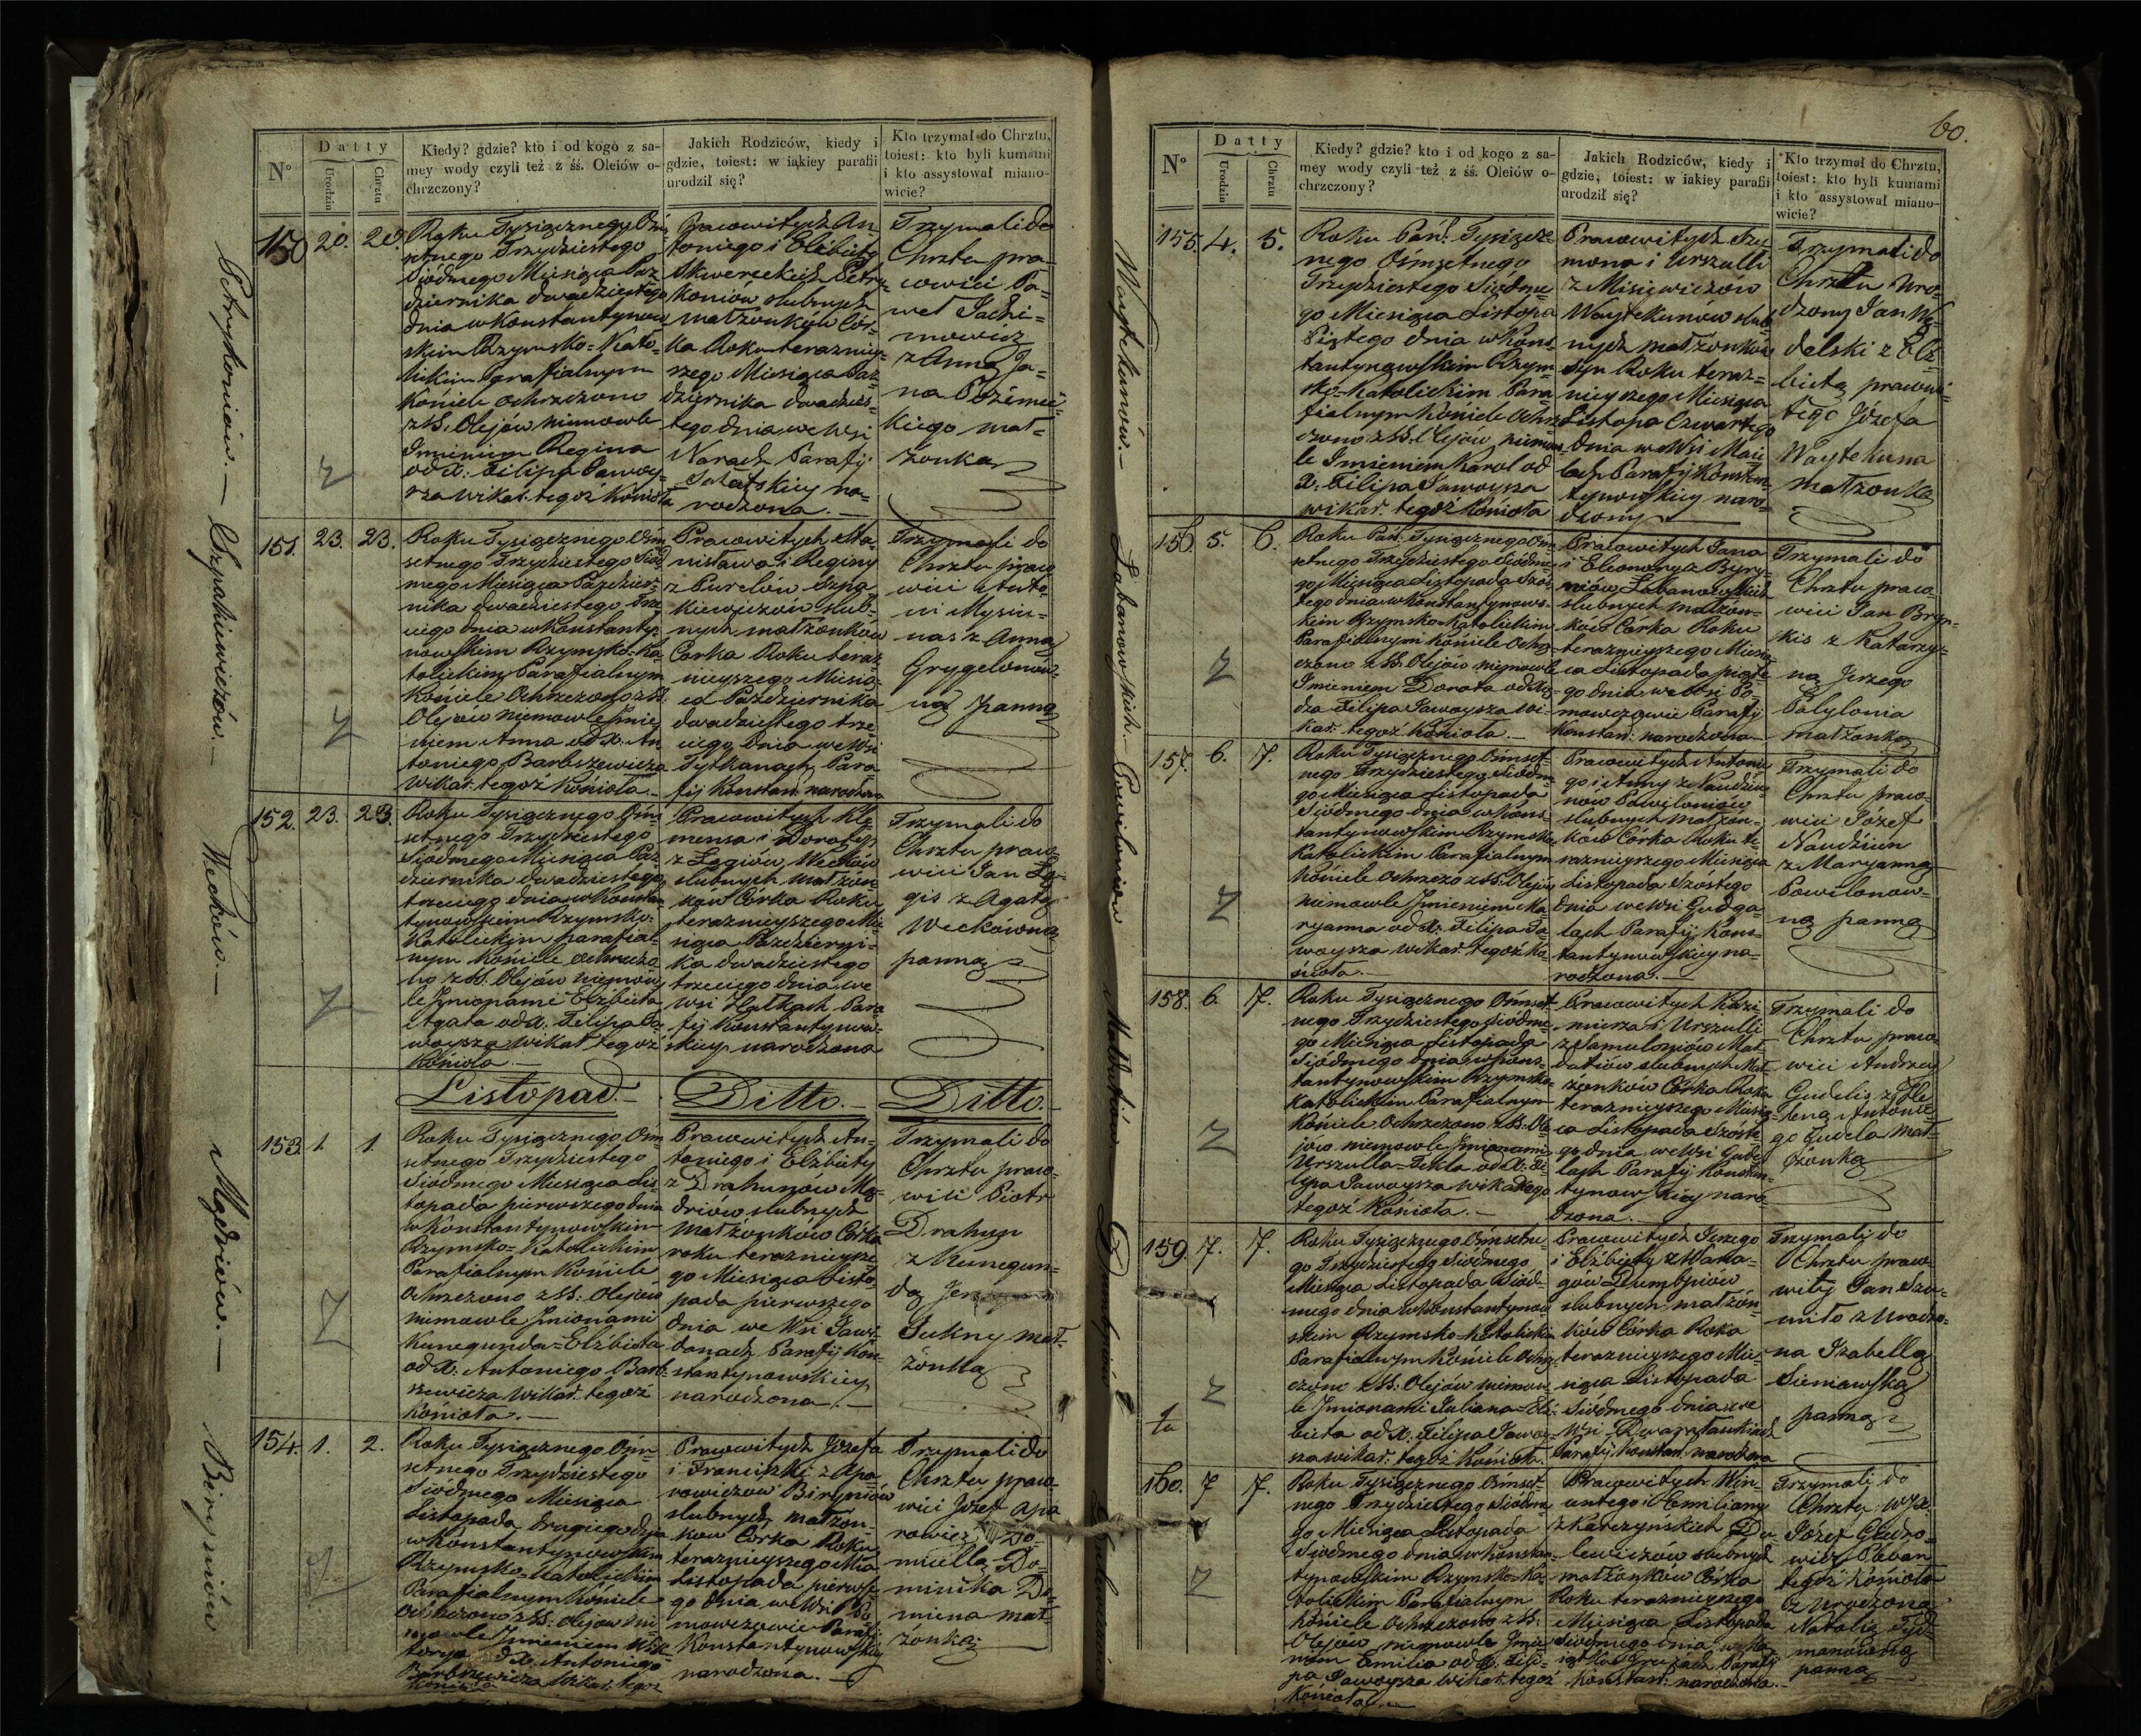 60.
N°
Datty
Urodzin
Chrztu
Kiedy? gdzie? kto i od kogo z sa-
mey wody czyli też z śś. Oleiów o-
chrzczony?
Jakich Rodziców, kiedy i
gdzie, toiest: w iakiey parafii
urodził się?
Kto trzymał do Chrztu,
toiest: kto byli kumami
i kto assystował miano-
wicie?
Petrykoniów. —
150 20. 20.
Roku Tysiącznego Ośm
setnego Trzydziestego
Siódmego Miesiąca Paź
dziernika dwadziestego
dnia w Konstantynow
skim Rzymsko-Kato-
lickim Parafialnym
Kościele ochrzczono
z SS. Olejów niemowle
Imieniem Regina
od X. Filipa Jawoy-
sza wikar. tegoż Kościoła
Pracowitych An
toniego i Elżbiety
małżonków Cór-
ka Roku teraźniey-
szego Miesiąca Paź-
dziernika dwadzies-
tego dnia we Wsi
Narach Parafij
rodzona. —
Trzymali do
Chrztu pra-
cowici Pa-
weł Jachi-
mowicz
z Anną Ja-
na
kiego mał-
żonką
Szpakiewiczów. —
151. 23. 23.
Roku Tysiącznego Ośm
setnego Trzydziestego Siód
mego Miesiąca Paździer-
nika dwadziestego trze
ciego dnia w Konstanty-
nowskim Rzymsko-Ka-
tolickim Parafialnym
Kościele Ochrzczono z SS.
Olejów niemowle Imie
niem Anna od X. An
toniego Barbszewicza
Wikar. tegoż Kościoła. —
Pracowitych Sta-
nisława i Reginy
z Purelów Szpa-
kiewiczów ślub-
nych małżonków
Córka Roku teraz
nieyszego Miesią-
ca Października
dwadziestego trze
ciego dnia we Wsi
Tytkanach Para
fij Konstan. narodzona
Trzymali do
Chrztu praco
wici Anto-
ni Mysiu-
nas z Anną
Grygelonow-
ną panną
Wecków. —
152. 23. 23.
Roku Tysiącznego Ośm
setnego Trzydziestego
Siódmego Miesiąca Paź
dziernika dwadziestego
trzeciego dnia w Konstan
tynowskim Rzymsko-
Katolickim parafial-
nym Kościele ochrzczo
no z SS. Olejów niemow
le Imionami Elżbieta
Agata od X. Filipa Ja
woysza Wikar. tegoż
Kościoła. —
Pracowitych Kle
mensa i Doroty
z Łogiów Wecków
ślubnych małżon
ków Córka Roku
teraznieyszego Mie
siąca Październi-
ka dwadziestego
trzeciego dnia we
wsi Hatkach Para
fij Konstantynow-
skiey narodzona
Trzymali do
Chrztu praco
wici Jan Ło
gis z Agatą
Weckówną
panną
Listopad. —
Ditto. —
Ditto. —
Mędriów. —
153. 1. 1.
Roku Tysiącznego Ośm
setnego Trzydziestego
Siódmego Miesiąca Lis-
topada pierwszego dnia
w Konstantynowskim
Rzymsko-Katolickim
Parafialnym Kościele
Ochrzczono z SS. Olejów
niemowle Imionami
Kunegunda-Elżbieta
od X. Antoniego Barb-
szewicza Wikar. tegoż
Kościoła. —
Pracowitych An-
toniego i Elżbiety
z Drahunów Mę-
driów ślubnych
małżonków Córka
roku teraznieysze
go Miesiąca Listo-
pada pierwszego
dnia we Wsi Jawi-
danach Parafij Kon-
stantynowskiey
narodzona. —
Trzymali do
Chrztu praco-
wici Piotr
Drahun
z Kunegun-
dą
Sukny mał-
żonką
Biryniów
154. 1. 2.
Roku Tysiącznego Ośm
setnego Trzydziestego
Siódmego Miesiąca
Listopada drugiego dnia
w Konstantynowskim
Rzymsko-Katolickim
Parafialnym Kościele
Ochrzczono z SS. Olejów nie
mowle Imieniem Wik-
torya od X. Antoniego
Barbszewicza Wikar. tegoż
Kościoła
Pracowitych Józefa
i Franciszki z Apa
rowiczów Biryniów
ślubnych małżon-
ków Córka Roku
teraznieyszego Mca
Listopada pierwsze
go dnia we Wsi Po
mowczowie Parafij
Konstantynowskiey
narodzona. —
Trzymali do
Chrztu praco-
wici Józef Apa
rowicz
Dominika Do
mina mał-
żonką
N°
Datty
Urodzin
Chrztu
Kiedy? gdzie? kto i od kogo z sa-
mey wody czyli też z śś. Oleiów o-
chrzczony?
Jakich Rodziców, kiedy i
gdzie, toiest: w iakiey parafii
urodził się?
Kto trzymał do Chrztu,
toiest: kto byli kumami
i kto assystował miano-
wicie?
Woytekunów. —
155. 4. 5.
Roku Pań. Tysiącz-
nego Ośmsetnego
Trzydziestego Siódme
go Miesiąca Listopa
Piątego dnia w Kons-
tantynowskim Rzym-
sko-Katolickim Para
fialnym Kościele Ochrz
czono z SS. Olejów niemow
le Imieniem Karol od
X. Filipa Jawoysza
wikar. tegoż Kościoła
Pracowitych Szy
mona i Urszulli
z Misiewiczów
Woytekunów ślub
nych małżonków
Syn Roku teraz-
nieyszego Miesiąca
Listopa Czwartego
dnia we Wsi Mac
lach Parafij Konstan
tynowskiey naro-
dzony
Trzymali do
Chrztu Uro-
dzony Jan We-
delski z Elż-
bietą pracowi-
tego Józefa
Woytekuna
małżonką
Łabanowskich. —
156. 5. 6.
Roku Pań. Tysiącznego Ośm
setnego Trzydziestego Siódme
go Miesiąca Listopada Szós-
tego dnia w Konstantynows-
kim Rzymsko-Katolickim
Parafialnym Kościele Ochrz
czono z SS. Olejów niemowle
Imieniem Dorota od Xię-
dza Filipa Jawoysza Wi-
kar. tegoż Kościoła. —
Pracowitych Jana
i Eleonory z Byry-
niów Łabanowskich
ślubnych małżon-
ków Córka Roku
teraznieyszego Miesią
ca Listopada piąte
go dnia we Wsi Po-
mowczowie Parafij
Konstan: narodzona
Trzymali do
Chrztu praco-
wici Jan Bryn-
kis z Katarzy-
ną Jerzego
małżonką
Powiloniów
157. 6. 7.
Roku Tysiącznego Ośmset-
nego Trzydziestego Siódme
go Miesiąca Listopada
Siódmego dnia w Kons-
tantynowskim Rzymsko
Katolickim Parafialnym
Kościele Ochrzczo z SS. Olejów
niemowle Imieniem Ma-
ryanna od X. Filipa Ja-
woysza wikar. tegoż Ko-
ścioła. —
Pracowitych Antonie
go i Anny z Naudziu
now Powiloniów
ślubnych małżon-
ków Córka Roku te-
raznieyszego Miesiąca
Listopada Szóstego
dnia we Wsi Gudga-
lach Parafij Kons-
tantynowskiey na-
rodzona. —
Trzymali do
Chrztu praco
wici Józef
Naudziun
z Maryanną
Powilonow-
ną panną
158. 6. 7.
Roku Tysiącznego Ośmset-
nego Trzydziestego Siódme-
go Miesiąca Listopada
Siódmego dnia w Kons-
tantynowskim Rzymsko-
Katolickim Parafialnym
Kościele Ochrzczono z SS. Ole
jów niemowle Imionami
Urszulla-Tekla od X. Fi-
lipa Jawoysza Wikarego
tegoż Kościoła. —
Pracowitych Kazi-
mierza i Urszulli
z Samuloniów
ślubnych Mał
żonków Córka Roku
teraznieyszego Miesią-
ca Listopada Szóste-
go dnia we Wsi Gudga
lach Parafij Konstan-
tynowskiey naro
dzona. —
Trzymali do
Chrztu praco-
wici Andrzey
Gudelis z He-
leną Antonie-
go Gudela mał-
żonką
Dumbniów
159. 7. 7.
Roku Tysiącznego Ośmsetne-
go Trzydziestego Siódmego
Miesiąca Listopada Siód-
mego dnia w Konstantynow
skim Rzymsko-Katolickim
Parafialnym Kościele Ochrz
czono z SS. Olejów niemow-
le Imionami Juliana-Elż-
bieta od X. Filipa Jawoy-
sza wikar. tegoż Kościoła.
Pracowitych Jerzego
i Elżbiety z Wara-
gów Dumbniów
ślubnych małżon-
ków Córka Roku
teraznieyszego Mie-
siąca Listopada
Siódmego dnia we
Parafij Konstan. narodzona
Trzymali do
Chrztu praco-
wity Jan Szu-
unto z Urodzo-
ną Izabellą
Sieniawską
panną
160. 7 7.
Roku Tysiącznego Ośmset-
nego Trzydziestego Siódme
go Miesiąca Listopada
Siódmego dnia w Konstan-
tynowskim Rzymsko-Ka-
tolickim Parafialnym
Kościele Ochrzczono z SS:
Olejów niemowle Imie
niem Emilia od X. Fili-
pa Jawoysza Wikar. tegoż
Kościoła. —
Pracowitych Win-
centego i Emiliany
z Karczyńskich Du
lewiczów ślubnych
małżonków Córka
Roku teraznieyszego
Miesiąca Listopada
Siódmego dnia
Konstan: narodzona. —
Trzymali do
Chrztu
Józef
Pleban
tegoż Kościoła
z Urodzoną
Natalią
panną